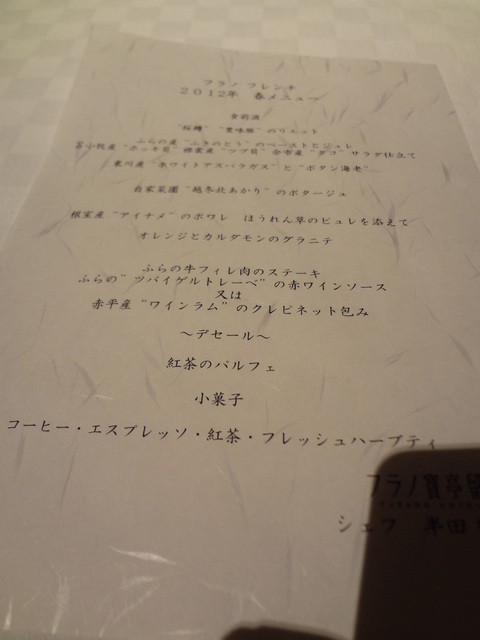 フラノ フレンチ
2012年 春メニュー
食前酒
"桜鱒" のリエット
ふらの産 "ふきのとう" のペーストとジュレ
苫小牧産 "ホッキ貝" 産 "ツブ貝" 余市産 "タコ" サラダ仕立て
東川産 "ホワイトアスパラガス" と "ボタン海老"
自家菜園 "越冬北あかり" のポタージュ
根室産 "アイナメ" のポワレ ほうれん草のピュレを添えて
オレンジとカルダモンのグラニテ
ふらの牛フィレ肉のステーキ
ふらの "ツバイゲルトレーベ" の赤ワインソース
又は
赤平産 "ワインラム" のクレピネット包み
～デセール～
紅茶のパルフェ
小菓子
コーヒー・エスプレッソ・紅茶・フレッシュハーブティ
フラノ寶亭留
シェフ 半田